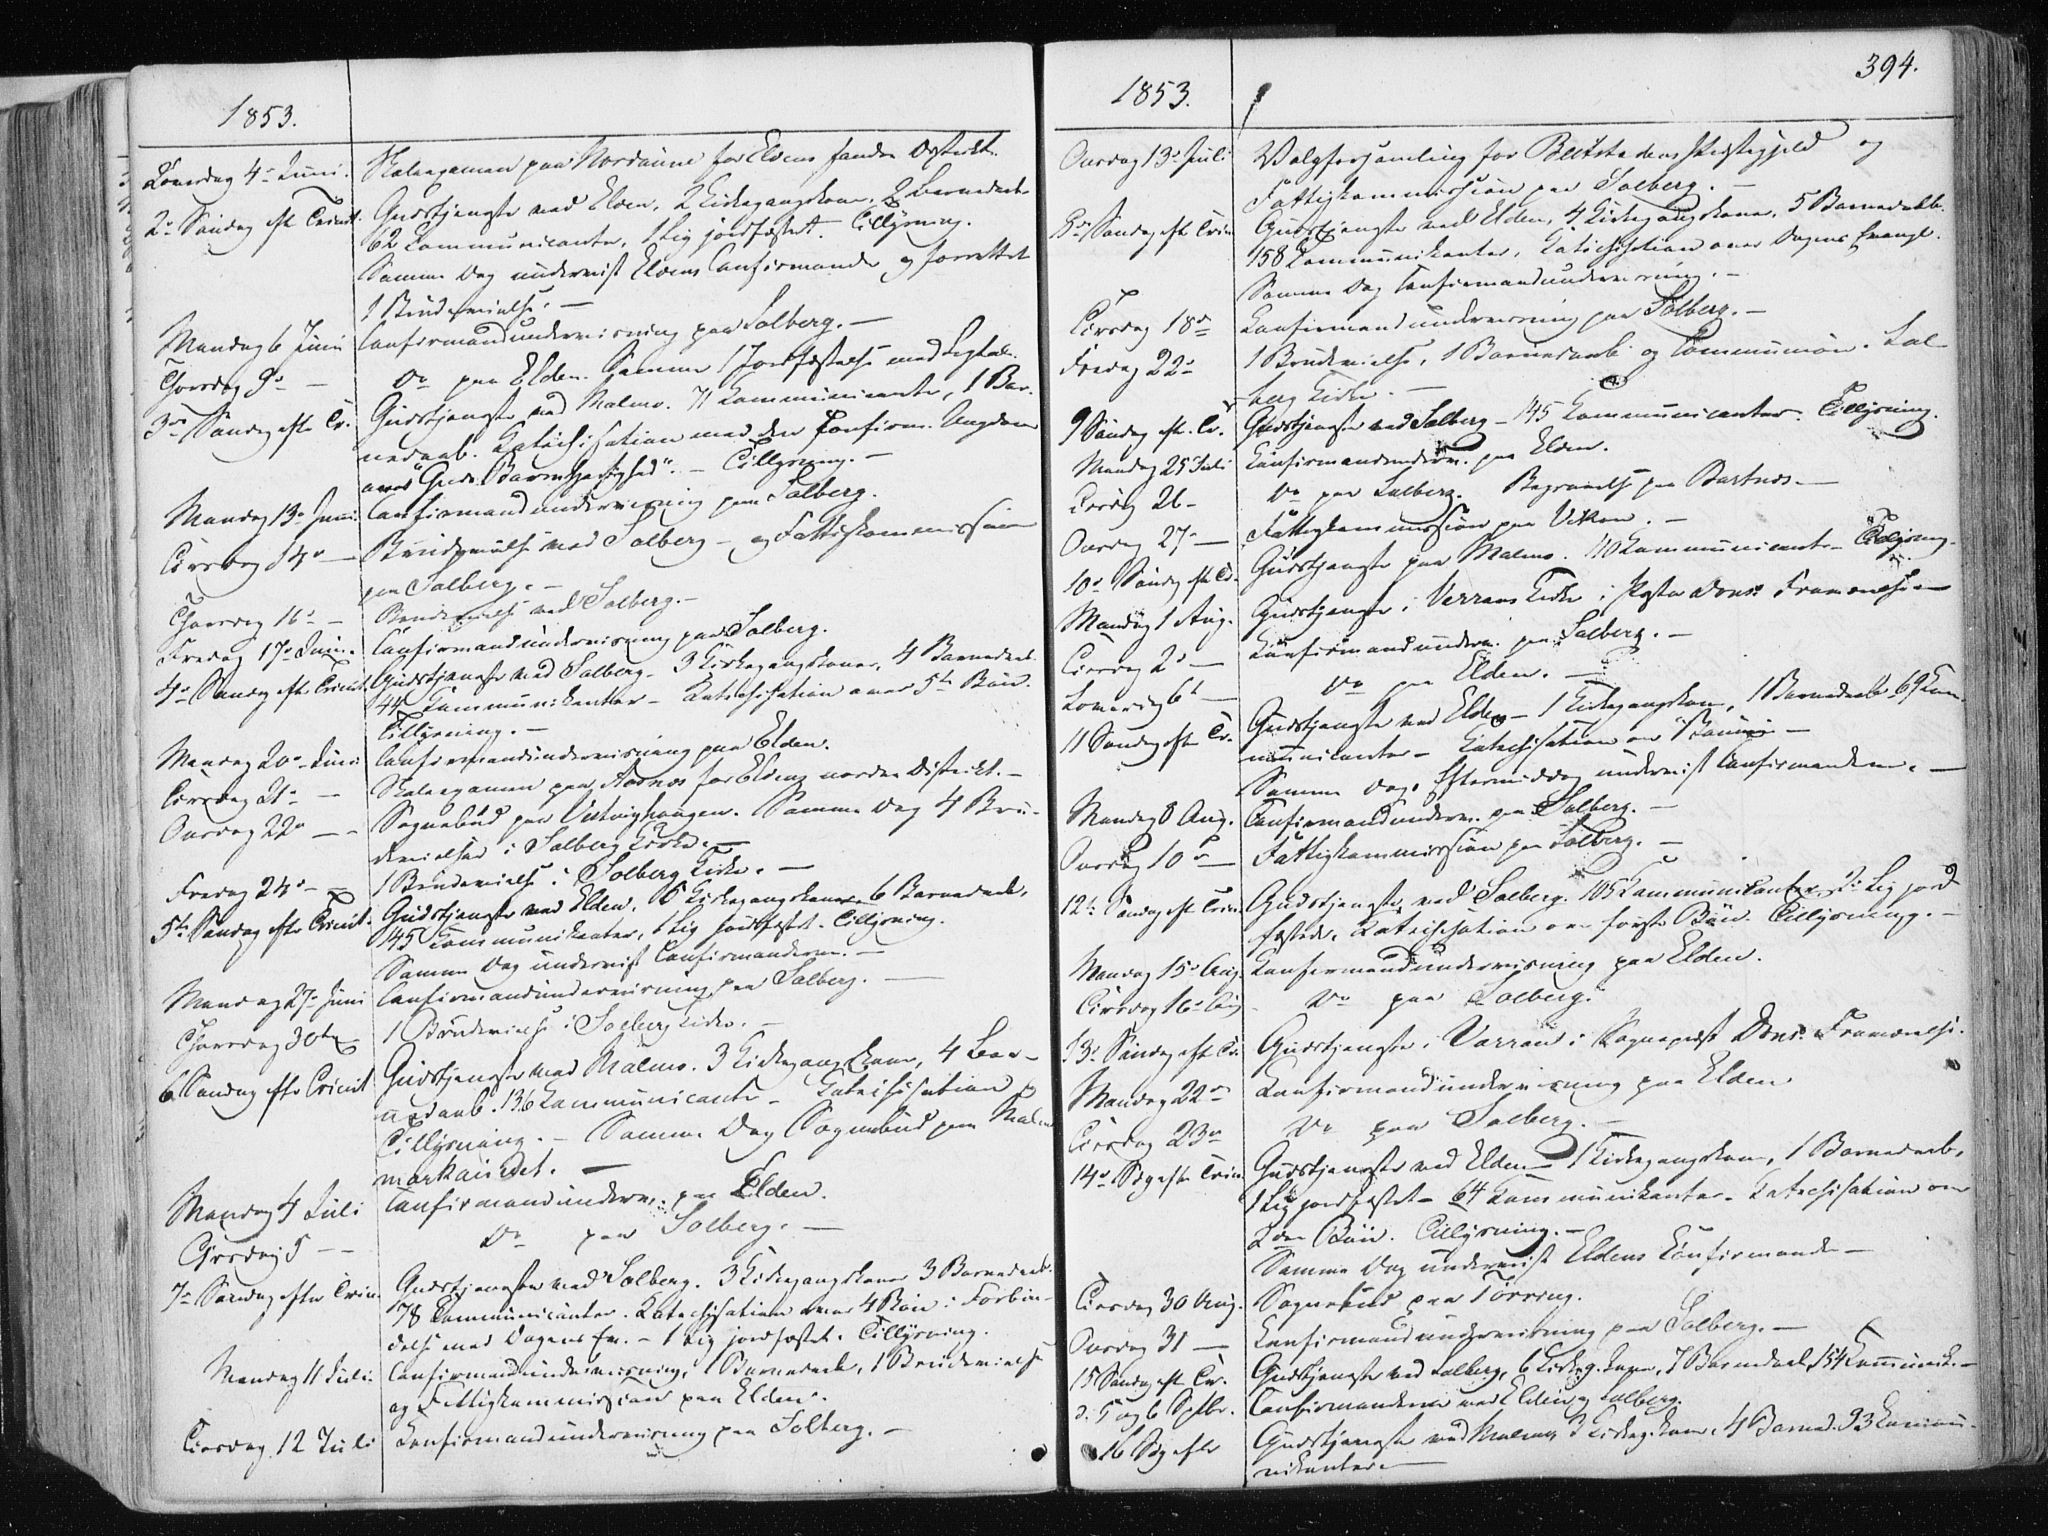 1853.
Løverdag 4de Juni. Skoleexamen paa Nordaune for Eldens søndre Distrikt.
2de Søndag eft. Trinit. Gudstjeneste ved Elden, 2 Kirkegangskoner, 2 Barnedaab
62 Communicanter, 1 Lig jordfæstet. Tillysning.
Samme Dag underviist Eldens Confirmander og forrettet
1 Brudevielse. —
Mandag 6 Juni Confirmandundervisning paa Solberg. —
Thorsdag 9de — Do paa Elden. Samme 1 Jordfæstelse med Ligtale.
3die Søndag efter Tr. Gudstjeneste ved Malmo. 71 Communicanter, 1 Bar-
nedaab. Katechisation med den Confirm. Ungdom
over "Guds Barmhjertighed". — Tillysning. —
Mandag 13de Juni. Confirmandundervisning paa Solberg.
Tirsdag 14de — Brudevielse ved Solberg — og Fattigkommission
paa Solberg. —
Thorsdag 16de — Brudevielse ved Solberg. —
Fredag 17de Juni. Confirmandundervisning paa Solberg.
4de Søndag efter Trinit. Gudstjeneste ved Solberg. 3 Kirkegangskoner, 4 Barnedaab
44 Communikanter — Katechisation over 5te Bøn.
Tillysning. —
Mandag 20de Juni Confirmandundervisning paa Elden.
Tirsdag 21de — Skoleexamen paa Aadnes for Eldens nordre Distrikt. —
Onsdag 22de — Sognebud paa . Samme Dag 4 Bru-
devielser i Solberg Kirke. —
Fredag 24de — 1 Brudevielse i Solberg Kirke. —
5te Søndag efter Trinit. Gudstjeneste ved Elden. 6 Kirkegangskoner, 6 Barnedaab,
145 Communikanter, 1 Lig jordfæstet. Tillysning.
Samme Dag underviist Confirmanderne. —
Mandag 27de Juni Confirmandundervisning paa Solberg. —
Thorsdag 30te 1 Brudevielse i Solberg Kirke. —
6 Søndag efter Trinit Gudstjeneste ved Malmo. 3 Kirkegangskoner, 4 Bar-
nedaab. 136 Communicanter — Katechisation og
Tillysning. — Samme Dag Sognebud paa Malm
markaundet. —
Mandag 4 Juli Confirmandunderv. paa Elden.
Tirsdag 5 — Do paa Solberg. —
7de Søndag efter Trin. Gudstjenesten ved Solberg. 3 Kirkegangskoner 3 Barnedaab.
78 Communicanter. Katechisation over 4 Bøn i Forbin-
delse med Dagens Ev. — 1 Lig jordfæstet. Tillysning.
Mandag 11 Juli. Confirmandundervisning, 1 Barnedaab, 1 Brudevielse
og Fattigkommission paa Elden.
Tirsdag 12 Juli Confirmandundervisning paa Solberg. —
394.
1853.
Onsdag 13de Juli Valgforsamling for Beitstadens Præstegjeld og
Fattigkommission paa Solberg. —
8de Søndag eft. Trin. Gudstjeneste ved Elden, 4 Kirkegangskoner, 5 Barnedaab.
158 Communikanter. Katechisation over Dagens Evangl.
Samme Dag Confirmandundervisning. —
Tirsdag 18de Confirmandundervisning paa Solberg. —
Fredag 22de 1 Brudevielse, 1 Barnedaab og Communion. Sol-
berg Kirke. —
9 Søndag eft. Tr. Gudstjeneste ved Solberg — 145 Communicanter. Tillysning.
Mandag 25 Juli Confirmandunderv. paa Elden.
Tirsdag 26 — Do paa Solberg. Begravelse paa Bartnes. —
Onsdag 27de — Fattigkommission paa Viken. —
10de Søndag eft. Tr. Gudstjeneste paa Malmo. 110 Communicanter — Tillysning.
Mandag 1 Aug. Gudstjeneste i Verrans Kirke i Pastor Fraværelse —
Tirsdag 2de — Confirmandunderv. paa Solberg. —
Løverdag 6te — Do paa Elden. —
11 Søndag efter Tr. Gudstjeneste ved Elden — 1 Kirkegangskone, 1 Barnedaab 69 Com-
municanter — Katechisation over —
Samme Dags Eftermiddag underviist Confirmanderne. —
Mandag 8 Aug. Confirmandunderv. paa Solberg. —
Onsdag 10de — Fattigkommission paa Solberg. —
12te Søndag eft. Trin. Gudstjeneste ved Solberg. 105 Communikanter, 2 Lig jord-
fæstede. Katechisation over første Bøn. Tillysning. —
Mandag 15de Aug. Confirmandundervisning paa Elden.
Tirsdag 16de Aug Do paa Solberg.
13de Søndag eft. Tr. Gudstjeneste i Verran i Sognepræst Fraværelse.
Mandag 22de Confirmandundervisning paa Elden
Tirsdag 23de Do paa Solberg. —
14de Søg efter Trin. Gudstjeneste ved Elden — 1 Kirkegangskone, 1 Barnedaab,
1 Lig jordfæstet — 64 Communikanter — Katechisation over
2den Bøn. Tillysning. —
Samme Dag underviist Eldens Confirmander —
Tirsdag 30 Aug. Sognebud paa Tørring.
Onsdag 31 — Confirmandundervisning paa Solberg. —
15 Søndag eft. Tr. Gudstjeneste ved Solberg, 6 Kirkeg.koner, 7 Barnedaab 154 Communik. —
d. 5 og 6 Septbr. Confirmanderne ved Elden og Solberg.
16 Søg efter Gudstjeneste ved Malmo, 3 Kirkeg.koner, 4 Barned. 93 Commu-
nikanter. —